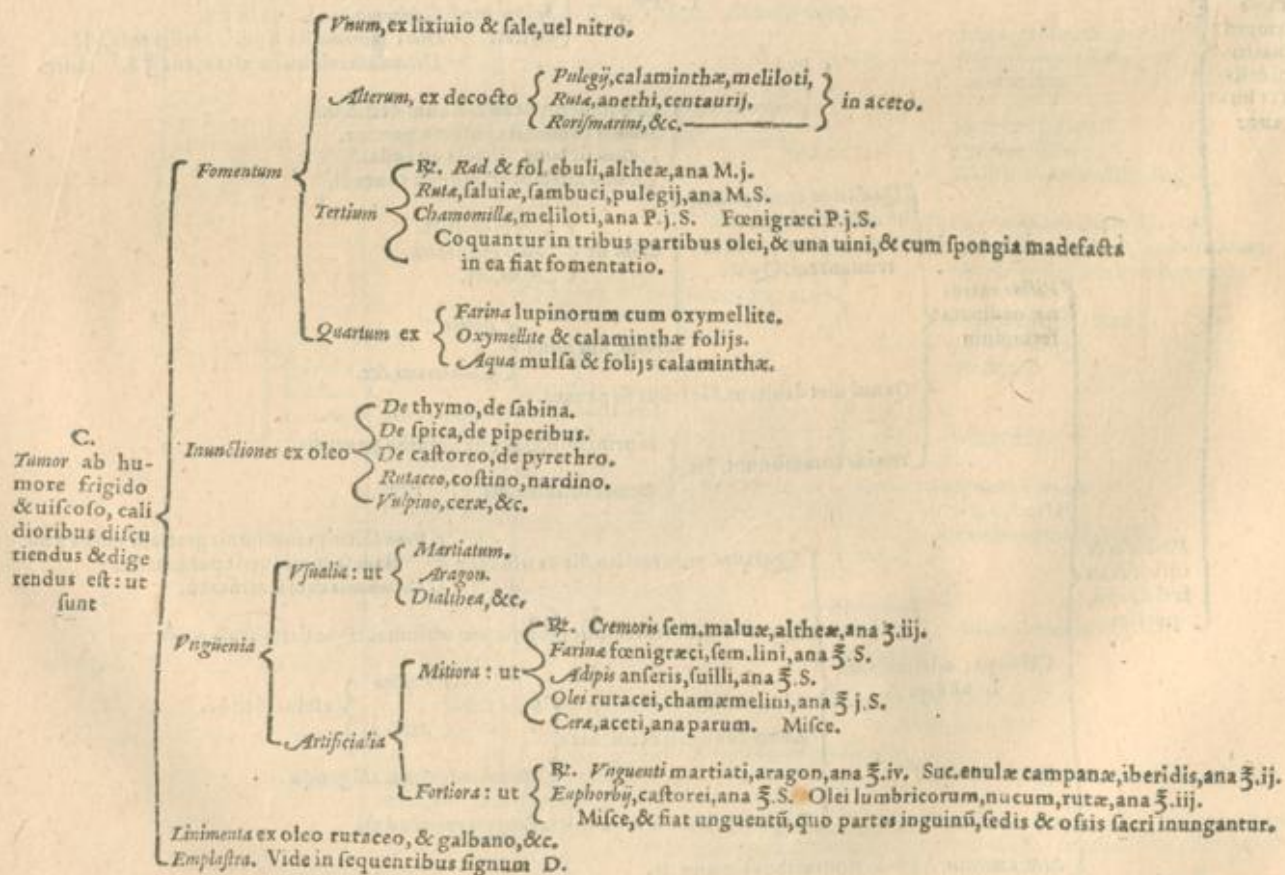 C.
Tumor ab hu-
more frigido
& uiſcoſo, cali
dioribus diſcu
tiendus & dige
rendus eſt: ut
ſunt
Fomentum
Vnum, ex lixiuio & ſale, uel nitro.
Alterum, ex decocto
Pulegij, calaminthæ, meliloti,
Rutæ, anethi, centaurij.
Roriſmarini, &c.
in aceto.
Tertium
℞. Rad & fol. ebuli, altheæ, ana M.j.
Rutæ, ſaluiæ, ſambuci, pulegij, ana M.S.
Chamomillæ, meliloti, ana P.j.S. Fœnigræci P.j.S.
Coquantur in tribus partibus olei, & una uini, & cum ſpongia madefacta
in ea fiat fomentatio.
Quartum ex
Farina lupinorum cum oxymellite.
Oxymellite & calaminthæ folijs.
Aqua mulſa & folijs calaminthæ.
Inunctiones ex oleo
De thymo, de ſabina.
De ſpica, de piperibus.
De caſtoreo, de pyrethro.
Rutaceo, coſtino, nardino.
Vulpino, ceræ, &c.
Vnguenta
Vſualia: ut
Martiatum.
Aragon.
Dialthea, &c.
Artificialia
Mitiora: ut
℞. Cremoris ſem. maluæ, altheæ, ana ℥.iij.
Farinæ fœnigræci, ſem. lini, ana ℥.S.
Adipis anſeris, ſuilli, ana ℥.S.
Olei rutacei, chamæmelini, ana ℥ j.S.
Ceræ, aceti, ana parum. Miſce.
Fortiora: ut
℞. Vnguenti martiati, aragon, ana ℥.iv. Suc. enulæ campanæ, iberidis, ana ℥.ij.
Euphorbij, caſtorei, ana ℥.S. Olei lumbricorum, nucum, rutæ, ana ℥.iij.
Miſce, & fiat unguentū, quo partes inguinū, ſedis & oſsis ſacri inungantur.
Linimenta ex oleo rutaceo, & galbano, &c.
Emplaſtra. Vide in ſequentibus ſignum D.